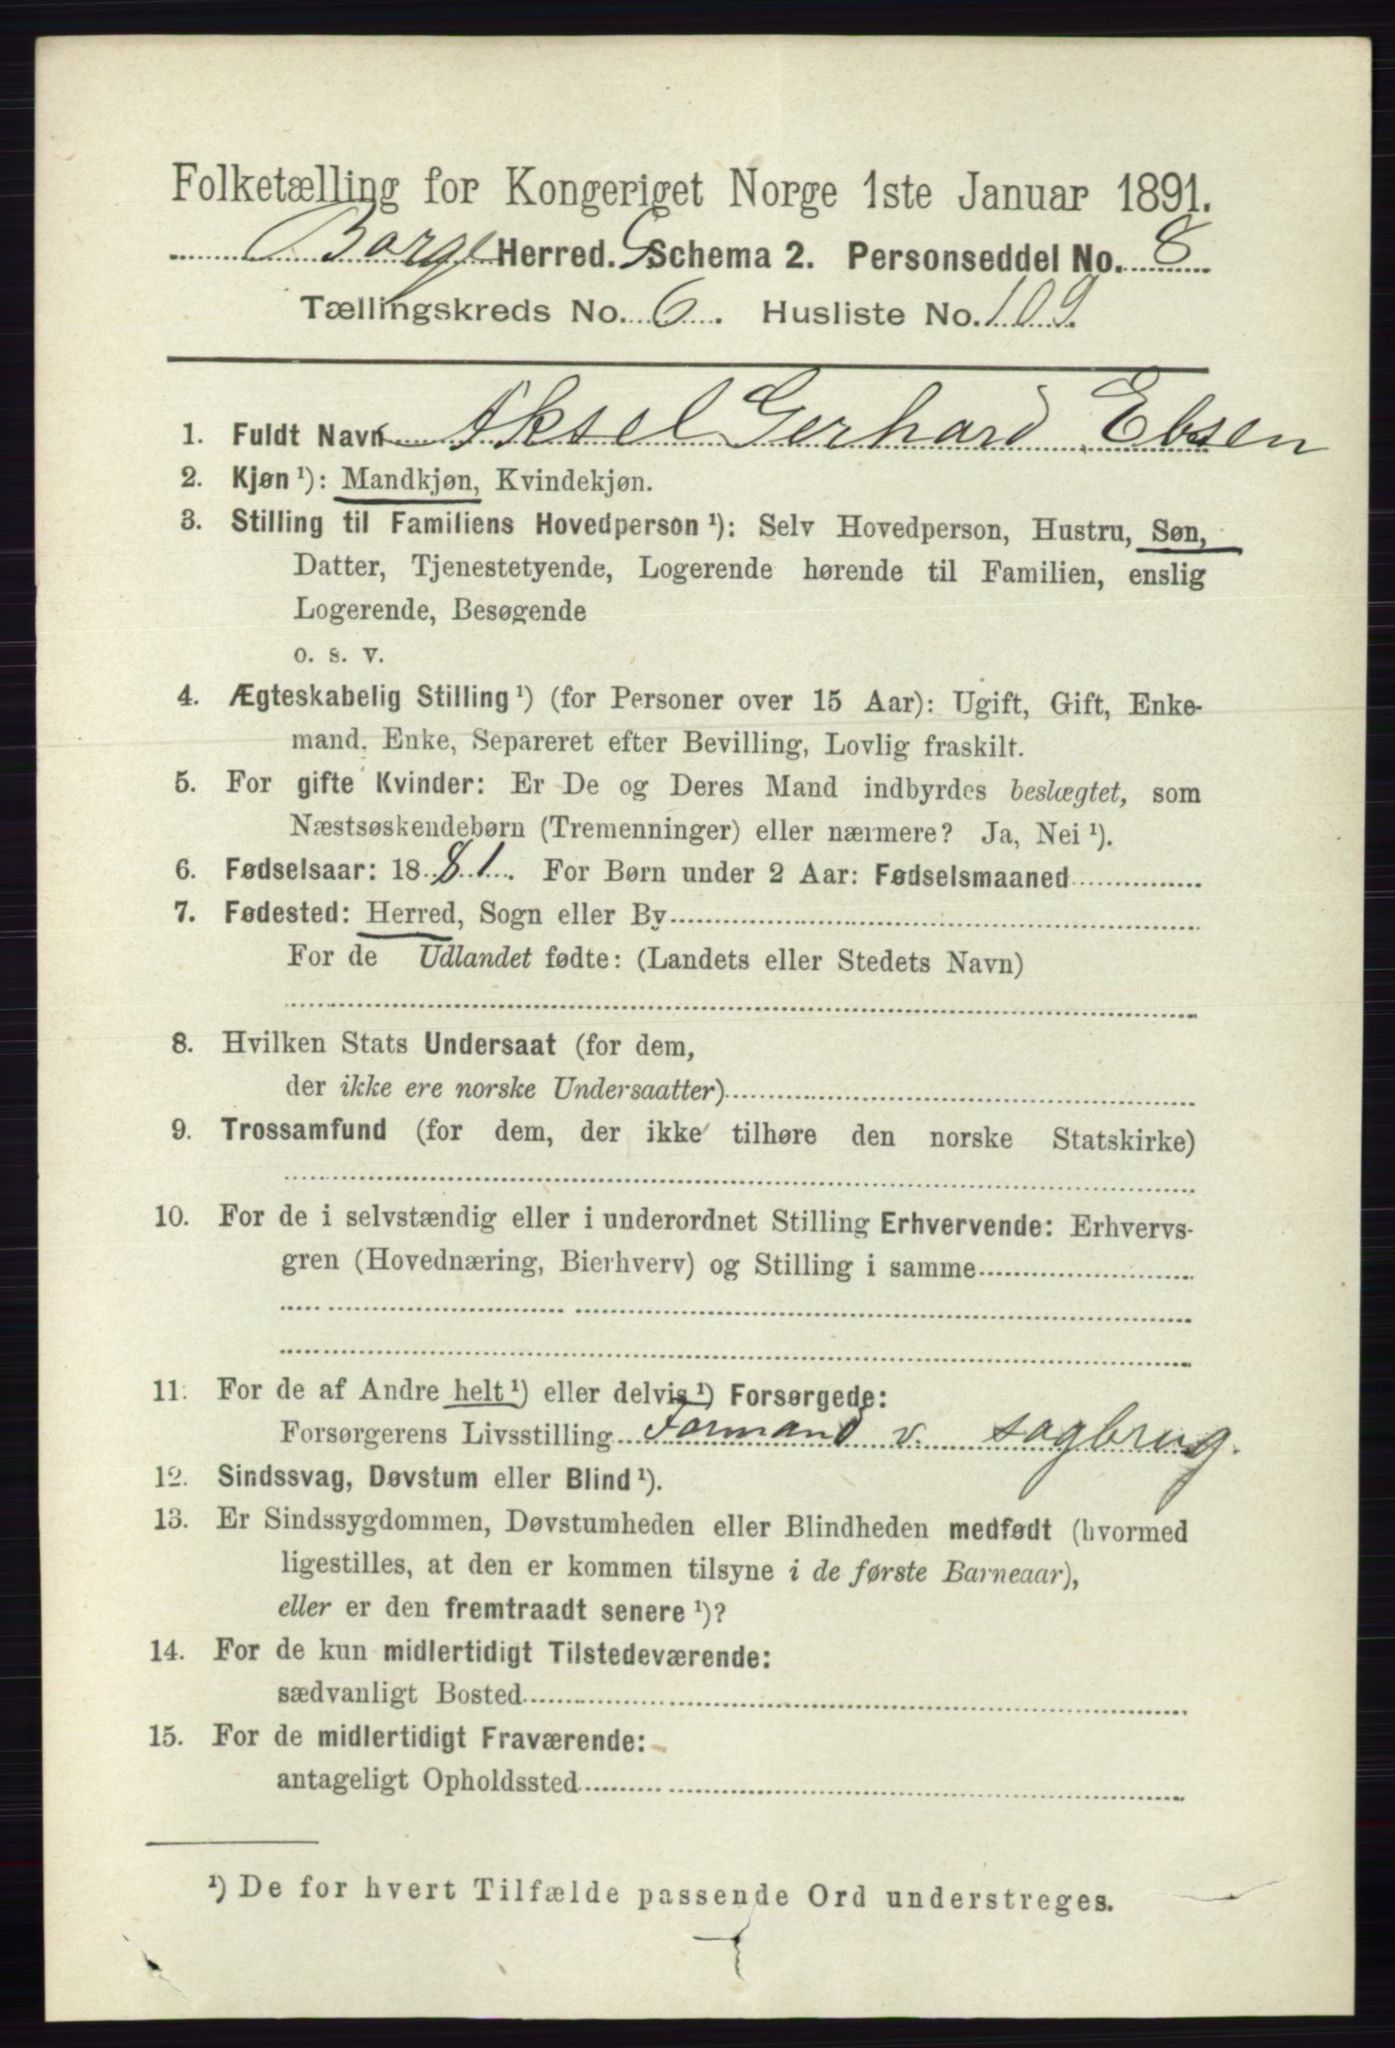 Folketælling for Kongeriget Norge 1ste Januar 1891.
Borge Herred. Schema 2. Personseddel No. 8
Tællingskreds No. 6. Husliste No. 109.
1. Fuldt Navn Aksel Gerhard Ebsen
2. Kjøn¹): Mandkjøn, Kvindekjøn.
3. Stilling til Familiens Hovedperson¹): Selv Hovedperson, Hustru, Søn,
Datter, Tjenestetyende, Logerende hørende til Familien, enslig
Logerende, Besøgende
o. s. v.
4. Ægteskabelig Stilling¹) (for Personer over 15 Aar): Ugift, Gift, Enke-
mand, Enke, Separeret efter Bevilling, Lovlig fraskilt.
5. For gifte Kvinder: Er De og Deres Mand indbyrdes beslægtet, som
Næstsøskendebørn (Tremenninger) eller nærmere? Ja, Nei¹).
6. Fødselsaar: 1881. For Børn under 2 Aar: Fødselsmaaned
7. Fødested: Herred, Sogn eller By
For de Udlandet fødte: (Landets eller Stedets Navn)
8. Hvilken Stats Undersaat (for dem,
der ikke ere norske Undersaatter)
9. Trossamfund (for dem, der ikke tilhøre den norske Statskirke)
10. For de i selvstændig eller i underordnet Stilling Erhvervende: Erhvervs-
gren (Hovednæring, Bierhverv) og Stilling i samme
11. For de af Andre helt¹) eller delvis¹) Forsørgede:
Forsørgerens Livsstilling Formand v. sagbrug.
12. Sindssvag, Døvstum eller Blind¹).
13. Er Sindssygdommen, Døvstumheden eller Blindheden medfødt (hvormed
ligestilles, at den er kommen tilsyne i de første Barneaar),
eller er den fremtraadt senere¹)?
14. For de kun midlertidigt Tilstedeværende:
sædvanligt Bosted
15. For de midlertidigt Fraværende:
antageligt Opholdssted
¹) De for hvert Tilfælde passende Ord understreges.